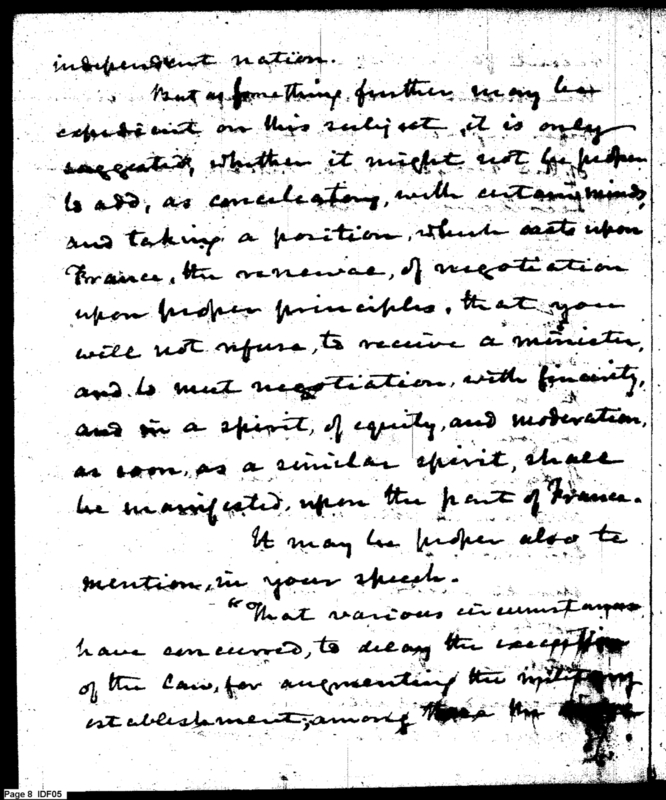 independent nation.
But as something further may be
expedient on this subject, it is only
suggested, whether it might not be proper
to add, as conciliatory, with certain minds,
and taking a position, which casts upon
France, the renewal, of negotiation
upon proper principles, that you
will not refuse, to receive a minister,
and to meet negotiation, with sincerity,
and in a spirit, of equity, and moderation,
as soon, as a similar spirit, shall
be manifested, upon the part of France.
It may be proper also to
mention, in your speech.
"That various circumstances
have concurred, to delay the execution
of the Law, for augmenting the military
establishment; among these the
Page 8 IDF05